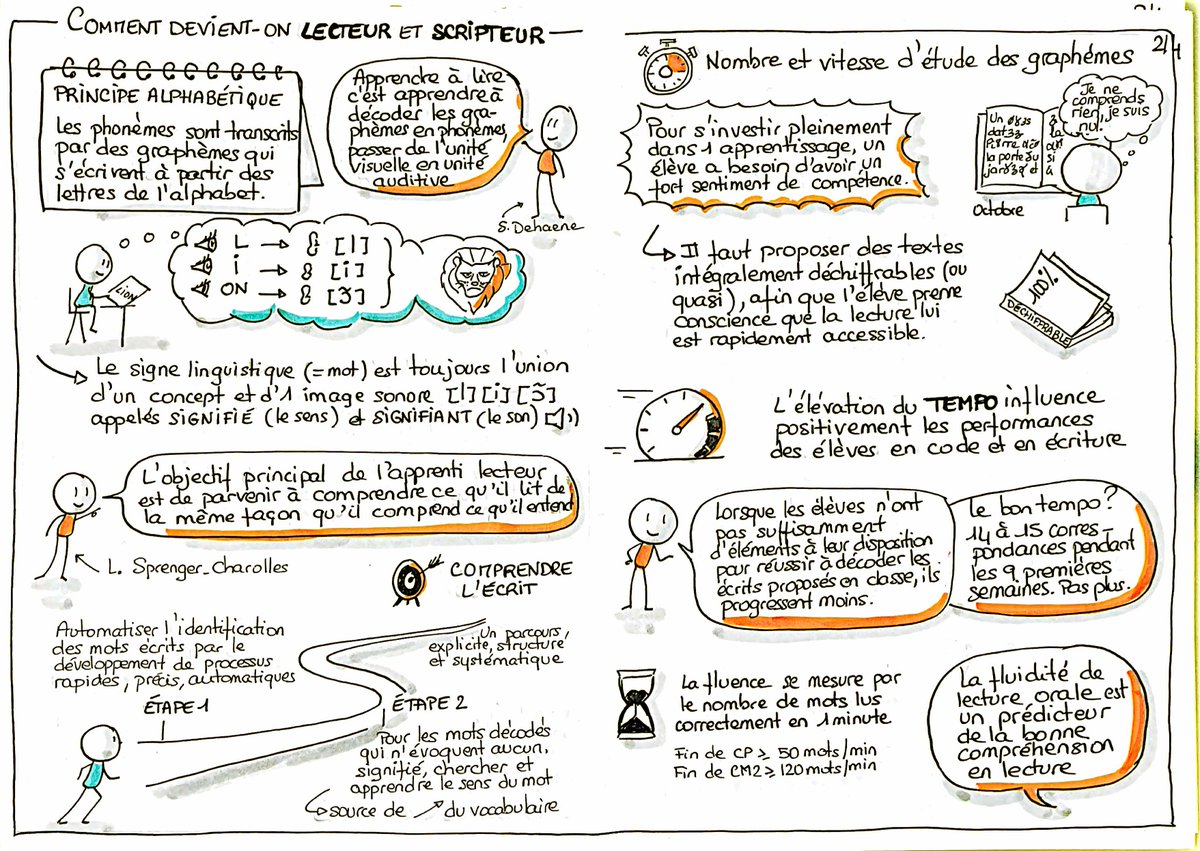 COMMENT DEVIENT-ON LECTEUR ET SCRIPTEUR
PRINCIPE ALPHABÉTIQUE
Les phonèmes sont transcrits
par des graphèmes qui
s'écrivent à partir des
lettres de l'alphabet.
Apprendre à lire
c'est apprendre à
décoder les gra-
phèmes en phonèmes,
passer de l'unité
visuelle en unité
auditive
S. Dehaene
LION
L → [l]
i → [i]
ON → [ɔ̃]
Le signe linguistique (=mot) est toujours l'union
d'un concept et d'1 image sonore [l][i][ɔ̃]
appelés SIGNIFIÉ (le sens) et SIGNIFIANT (le son)
L'objectif principal de l'apprenti lecteur
est de parvenir à comprendre ce qu'il lit de
la même façon qu'il comprend ce qu'il entend
L. Sprenger-Charolles
COMPRENDRE
L'ÉCRIT
Automatiser l'identification
des mots écrits par le
développement de processus
rapides, précis, automatiques
ÉTAPE 1
Un parcours,
explicite, structuré
et systématique
ÉTAPE 2
Pour les mots décodés
qui n'évoquent aucun,
signifié, chercher et
apprendre le sens du mot
↳ source de ↗ du vocabulaire
2/4
Nombre et vitesse d'étude des graphèmes
Pour s'investir pleinement
dans 1 apprentissage, un
élève a besoin d'avoir un
fort sentiment de compétence.
Je ne
comprends
rien, je suis
nul!
Un
la porte
Octobre
↳ Il faut proposer des textes
intégralement déchiffrables (ou
quasi), afin que l'élève prenne
conscience que la lecture lui
est rapidement accessible.
100%
DÉCHIFFRABLE
L'élévation du TEMPO influence
positivement les performances
des élèves en code et en écriture
Lorsque les élèves n'ont
pas suffisamment
d'éléments à leur disposition
pour réussir à décoder les
écrits proposés en classe, ils
progressent moins.
Le bon tempo?
14 à 15 corres-
pondances pendant
les 9 premières
semaines. Pas plus.
La fluence se mesure par
le nombre de mots lus
correctement en 1 minute
Fin de CP ≥ 50 mots/min
Fin de CM2 ≥ 120 mots/min
La fluidité de
lecture orale est
un prédicteur
de la bonne
compréhension
en lecture